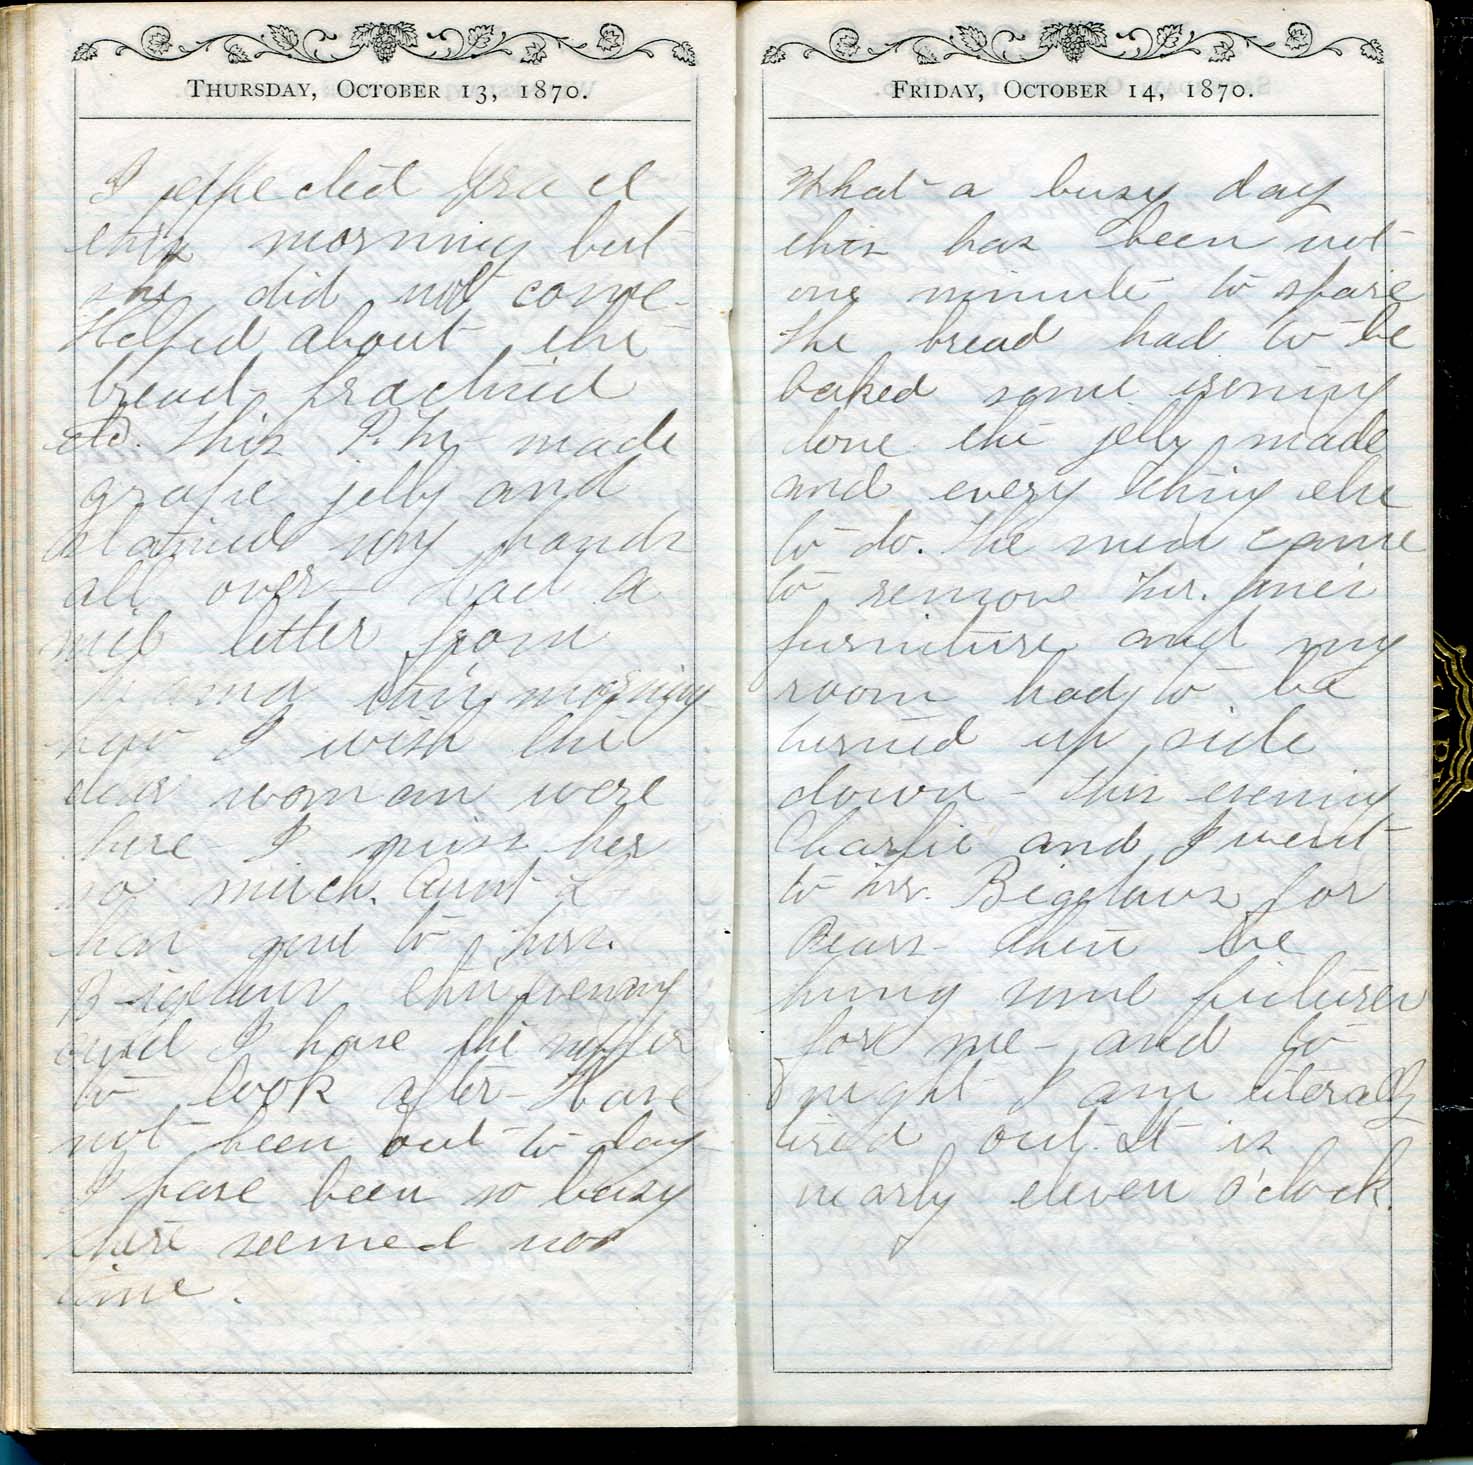 THURSDAY, OCTOBER 13, 1870.
I expected Grace
this morning but
she did not come-
Helped about the
bread- practiced
etc. This P.M- made
grape jelly and
stained my hands
all over- Had a
nice letter from
Mama this morning
how I wish the
dear woman were
here- I miss her
so much. Aunt L
has gone to Mrs.
Bigelows this evening
and I have the
to look after- Have
not been out to day
I have been so busy
there seemed no
time.
FRIDAY, OCTOBER 14, 1870.
What a busy day
this has been not
one minute to spare
the bread had to be
baked some ironing
done the jelly made
and every thing else
to do. The men came
to remove Mr.
furniture and my
room had to be
turned up side
down- This evening
Charlie and I went
to Mr. Bigelows for
Pears- then he
hung some pictures
for me- and to
night I am literally
tired out. It is
nearly eleven o'clock.